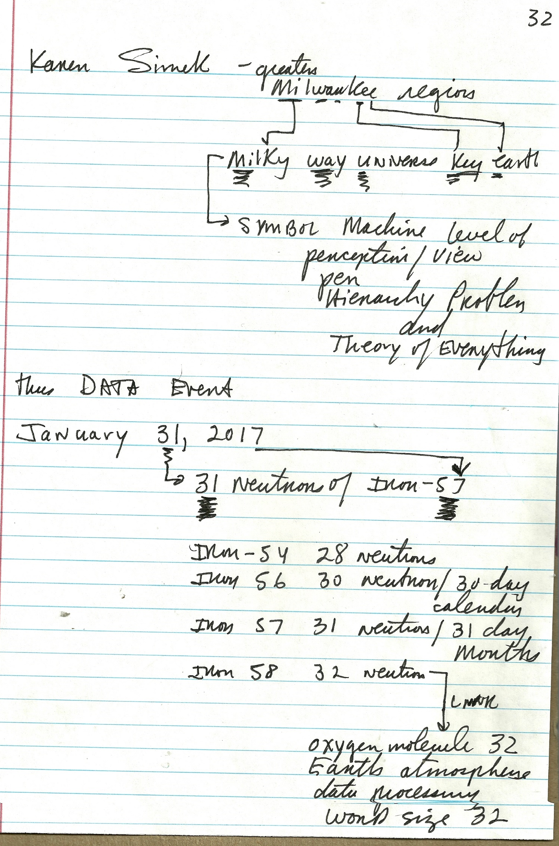 32
Karen Simek - greater
Milwaukee region
Milky way universe key earth
symbol Machine level of
perception / view
per
Hierarchy Problem
and
Theory of Everything
thus DATA Event
January 31, 2017
31 neutrons of Iron-57
Iron-54 28 neutrons
Iron 56 30 neutron / 30-day
calendar
Iron 57 31 neutrons / 31 day
months
Iron 58 32 neutron
LINK
oxygen molecule 32
Earth atmosphere
data processing
word size 32